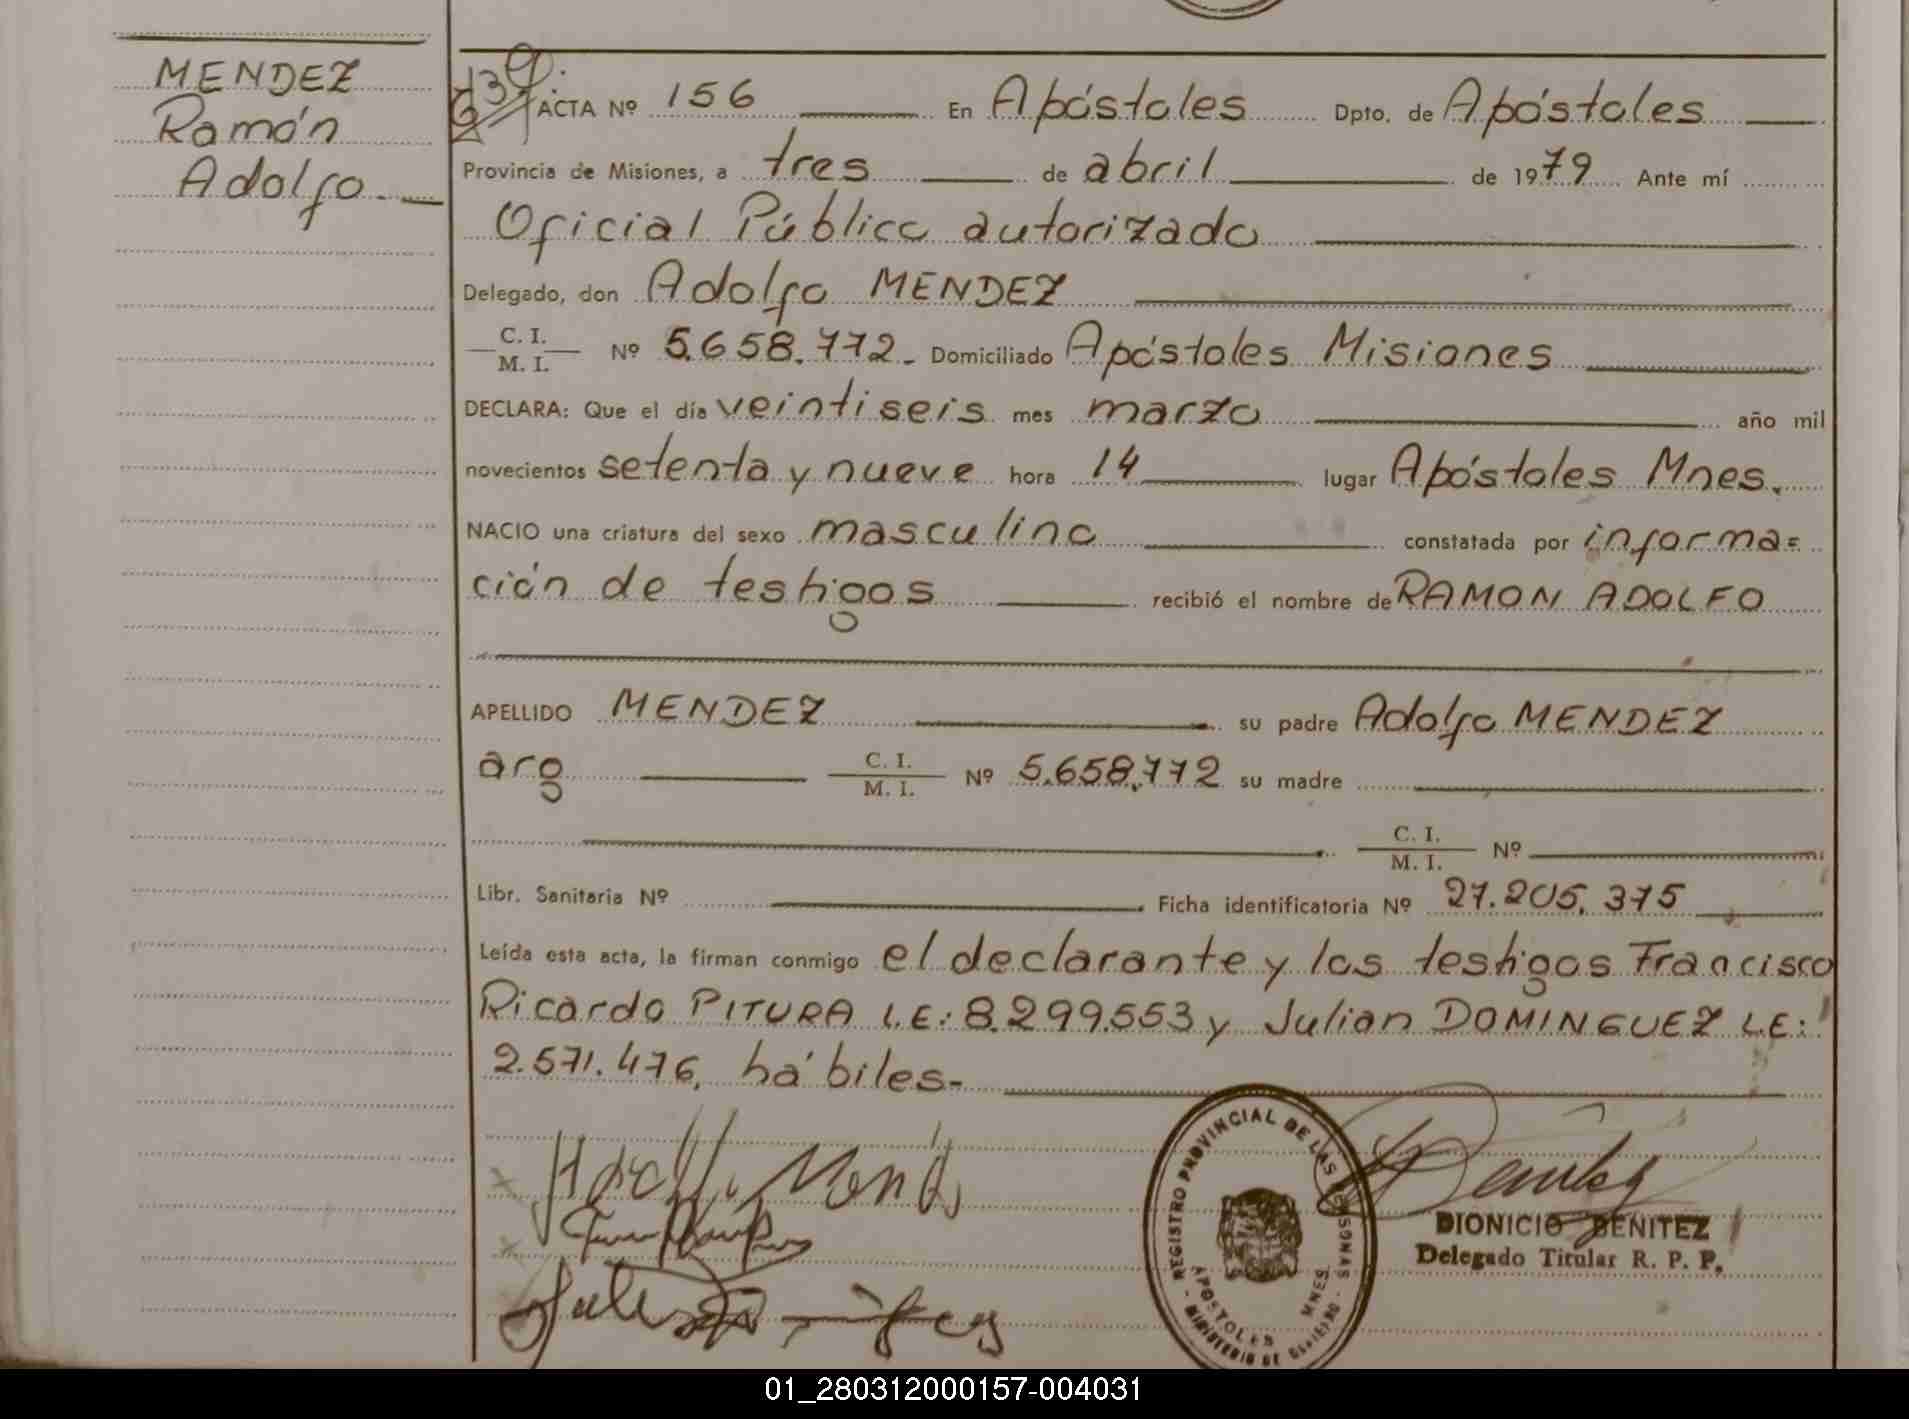 MENDEZ
Ramón
Adolfo.
639.
ACTA Nº 156 En Apóstoles Dpto. de Apóstoles
Provincia de Misiones, a tres de abril de 1979 Ante mí
Oficial Público autorizado
Delegado, don Adolfo MENDEZ
C. I.
M. I. Nº 5.658.772.- Domiciliado Apóstoles Misiones
DECLARA: Que el día veintiseis mes marzo año mil
novecientos setenta y nueve hora 14 lugar Apóstoles Mnes.
NACIO una criatura del sexo masculino constatada por informa=
ción de testigos recibió el nombre de RAMON ADOLFO
APELLIDO MENDEZ su padre Adolfo MENDEZ
arg C. I.
M. I. Nº 5.658.772 su madre
C. I.
M. I. Nº
Libr. Sanitaria Nº Ficha identificatoria Nº 27.205.375
Leída esta acta, la firman conmigo el declarante y los testigos Francisco
Ricardo PITURA L.E: 8.299.553 y Julian DOMINGUEZ L.E:
2.571.476, hábiles.-
REGISTRO PROVINCIAL DE LAS PERSONAS
APOSTOLES MNES.
MINISTERIO DE GOBIERNO
DIONICIO BENITEZ
Delegado Titular R. P. P.
01_280312000157-004031